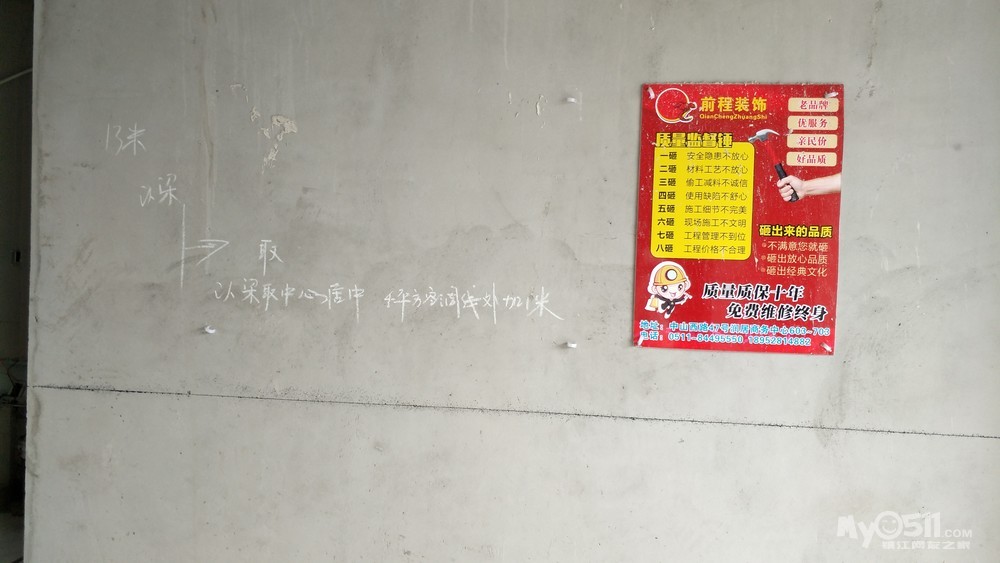 以梁
取
以梁取中心居中 4平方空调线外加1米
前程装饰
QianChengZhuangShi
老品牌
优服务
亲民价
好品质
质量监督锤
一砸 安全隐患不放心
二砸 材料工艺不放心
三砸 偷工减料不诚信
四砸 使用缺陷不舒心
五砸 施工细节不完美
六砸 现场施工不文明
七砸 工程管理不到位
八砸 工程价格不合理
砸出来的品质
不满意您就砸
砸出放心品质
砸出经典文化
质量质保十年
免费维修终身
地址：中山西路47号润居商务中心603-703
电话：0511-84495550 18952814882
My0511.COM
镇江网友之家